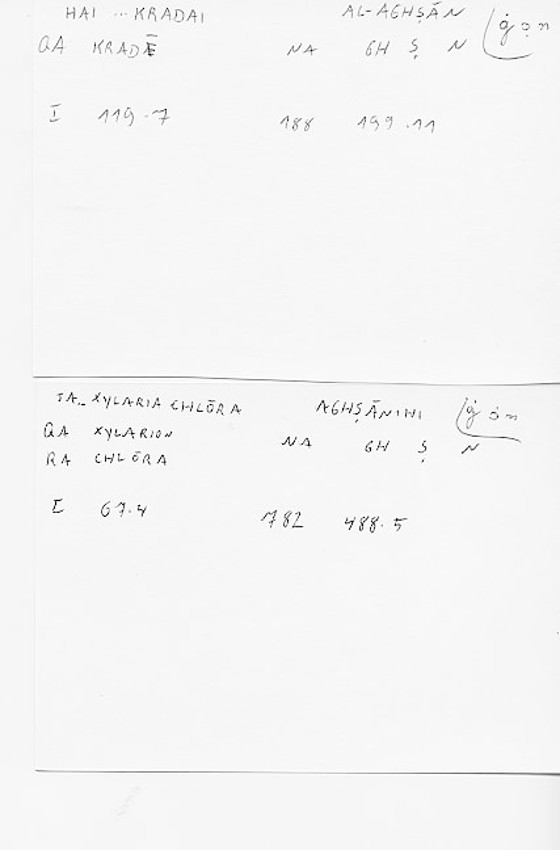 HAI ... KRADAI AL-AGHṢĀN (ġ ṣ n
QA KRADĒ NA GH Ṣ N
I 119.7 188 199.11
TA.. XYLARIA CHLŌRA AGHṢĀNIHI (ġ ṣ n
QA XYLARION NA GH Ṣ N
RA CHLŌRA
I 67.4 782 488.5